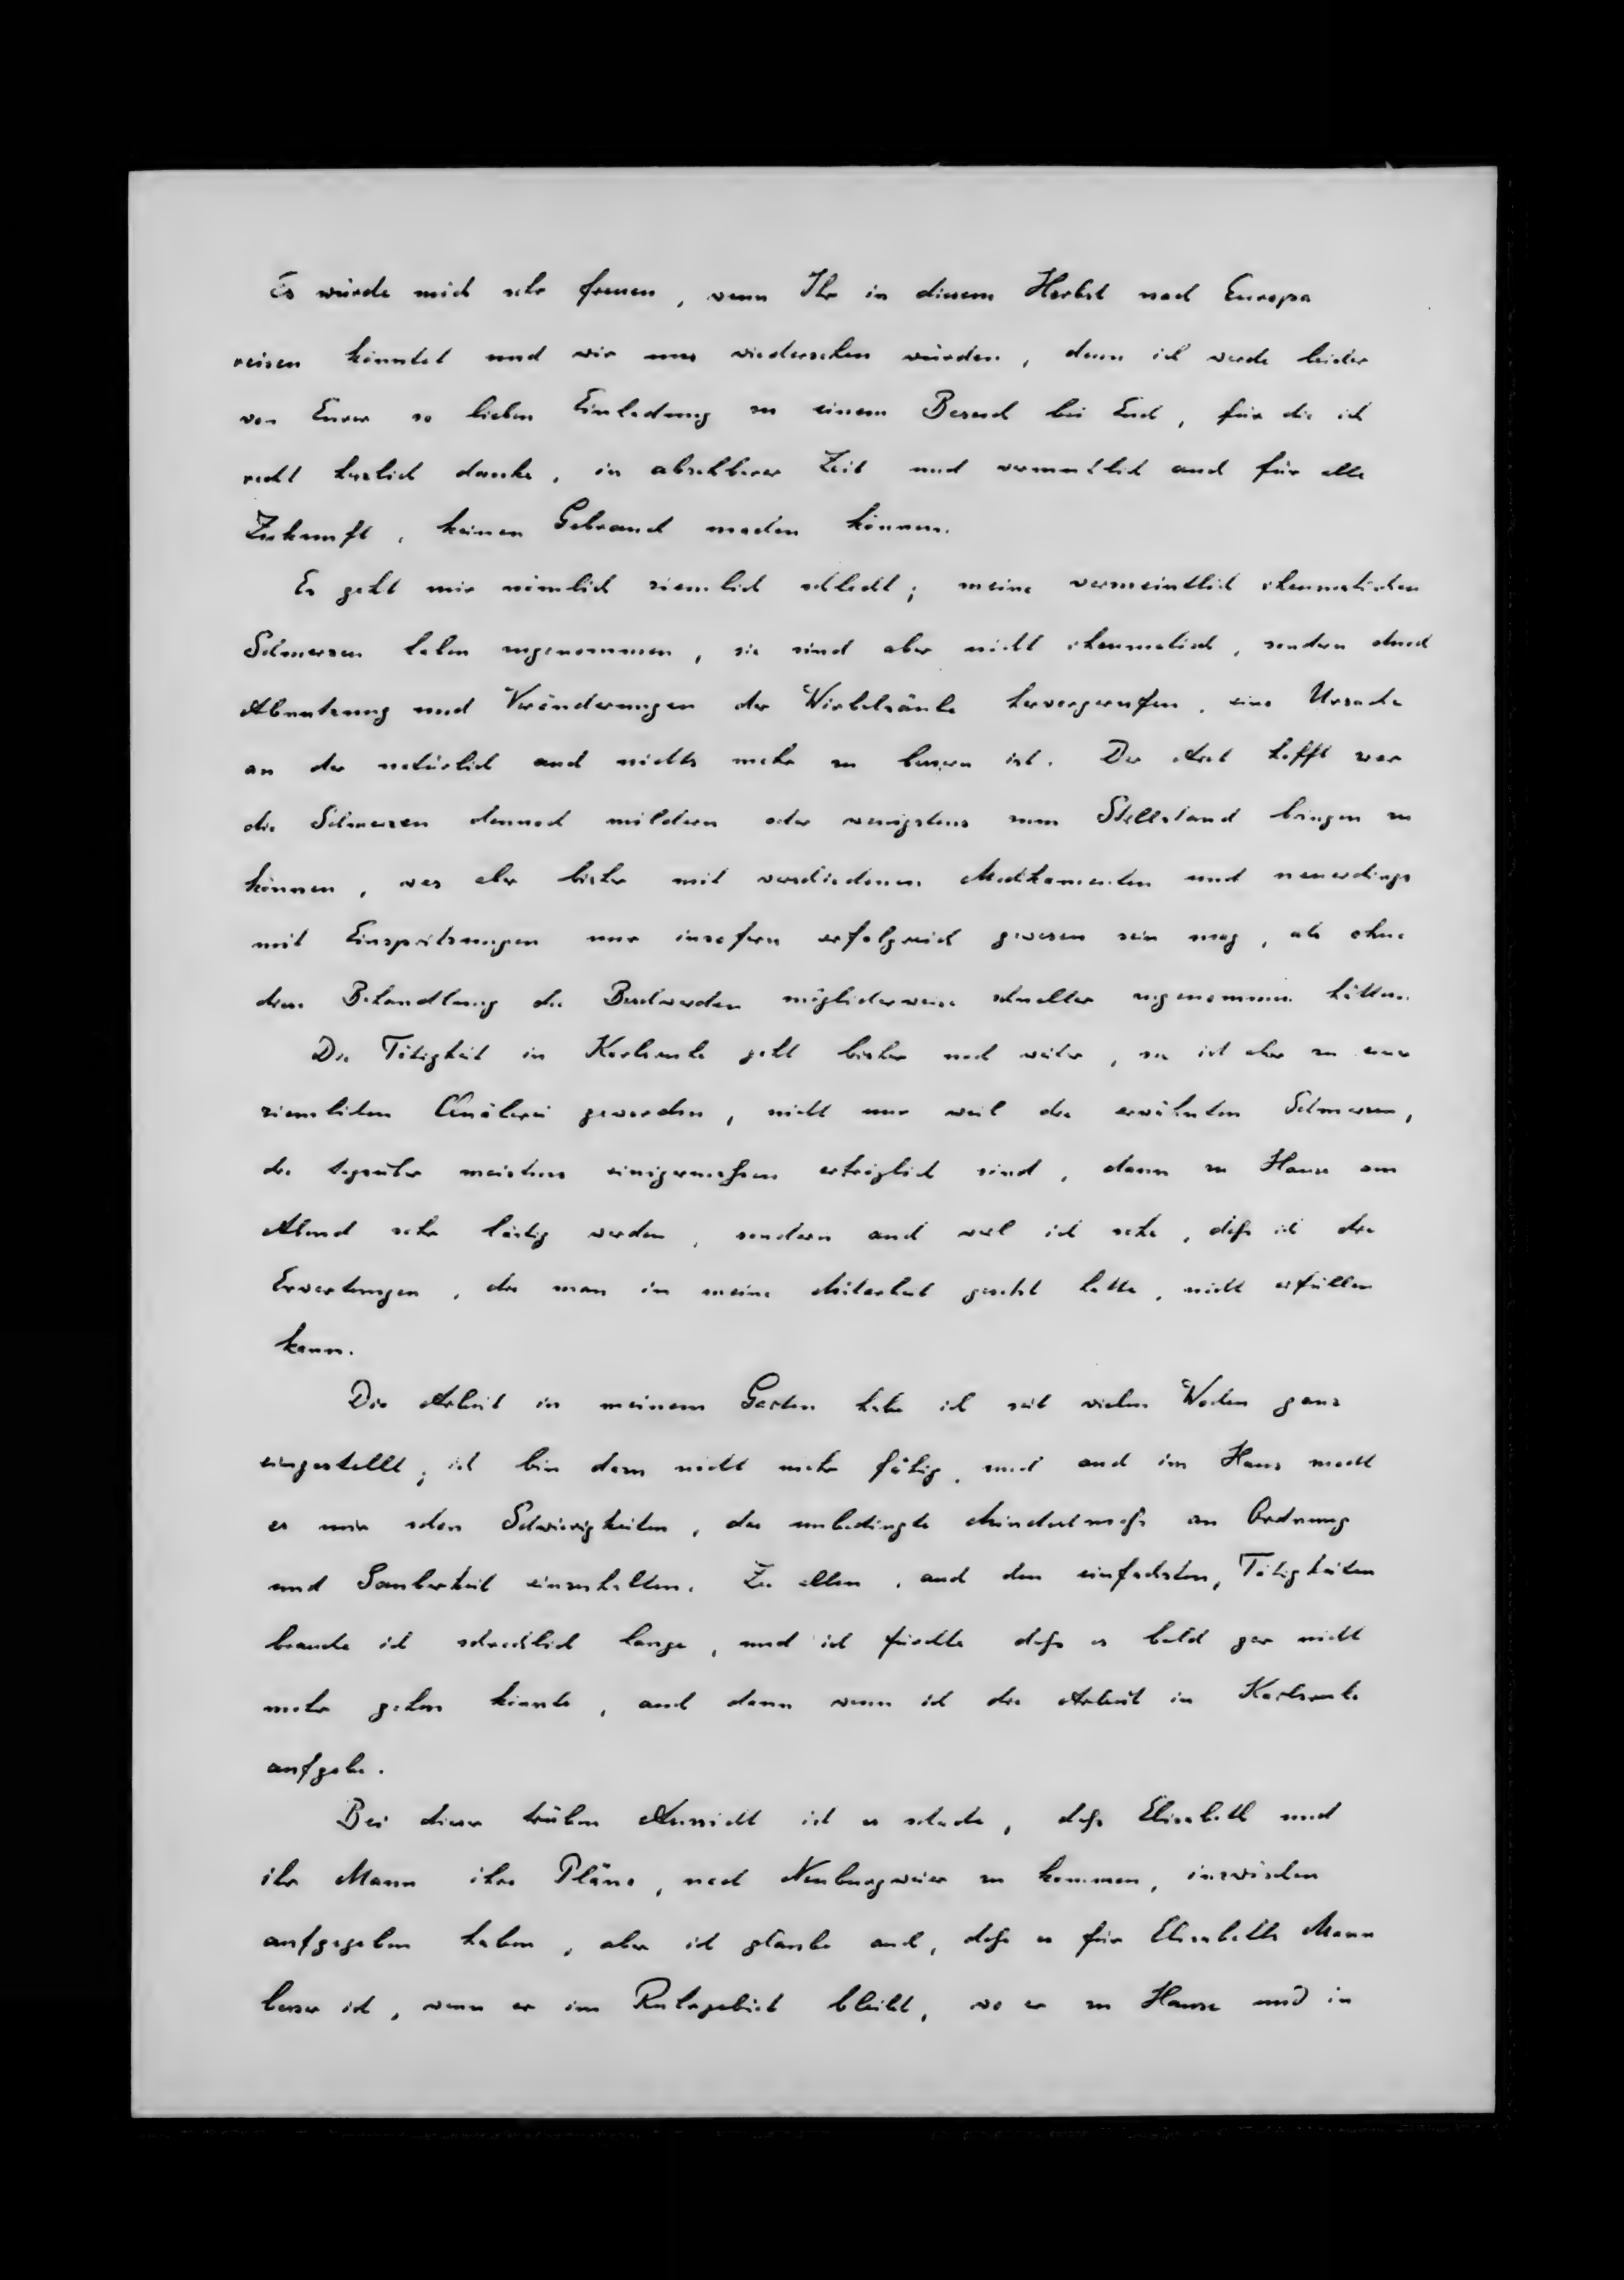 Es würde mich sehr freuen, wenn Ihr in diesem Herbst nach Europa
reisen könntet und wir uns wiedersehen würden, denn ich werde leider
von Eurer so lieben Einladung zu einem Besuch bei Euch, für die ich
recht herzlich danke, in absehbarer Zeit und vermutlich auch für alle
Zukunft, keinen Gebrauch machen können.
Es geht mir nämlich ziemlich schlecht; meine vermeintlich rheumatischen
Schmerzen haben zugenommen, sie sind aber nicht rheumatisch, sondern durch
Abnutzung und Veränderungen der Wirbelsäule hervorgerufen, eine Ursache
an der natürlich auch nichts mehr zu bessern ist. Der Arzt hofft zwar
die Schmerzen dennoch mildern oder wenigstens zum Stillstand bringen zu
können, was aber bisher mit verschiedenen Medikamenten und neuerdings
mit Einspritzungen nur insofern erfolgreich gewesen sein mag, als ohne
diese Behandlung die Beschwerden möglicherweise schneller zugenommen hätten.
Die Tätigkeit in Karlsruhe geht bisher noch weiter, sie ist aber zu einer
ziemlichen Quälerei geworden, nicht nur weil die erwähnten Schmerzen,
die tagsüber meistens einigermaßen erträglich sind, dann zu Hause am
Abend sehr lästig werden, sondern auch weil ich sehe, daß ich die
Erwartungen, die man in meine Mitarbeit gesetzt hatte, nicht erfüllen
kann.
Die Arbeit in meinem Garten habe ich seit vielen Wochen ganz
eingestellt; ich bin dazu nicht mehr fähig, und auch im Haus macht
es mir schon Schwierigkeiten, das unbedingte Mindestmaß an Ordnung
und Sauberkeit einzuhalten. Zu allen, auch den einfachsten, Tätigkeiten
brauche ich schrecklich lange, und ich fürchte daß es bald gar nicht
mehr gehen könnte, auch dann wenn ich die Arbeit in Karlsruhe
aufgebe.
Bei dieser trüben Aussicht ist es schade, daß Elisabeth und
ihr Mann ihre Pläne, nach Neuburgweier zu kommen, inzwischen
aufgegeben haben, aber ich glaube auch, daß es für Elisabeths Mann
besser ist, wenn er im Ruhrgebiet bleibt, wo er zu Hause und in